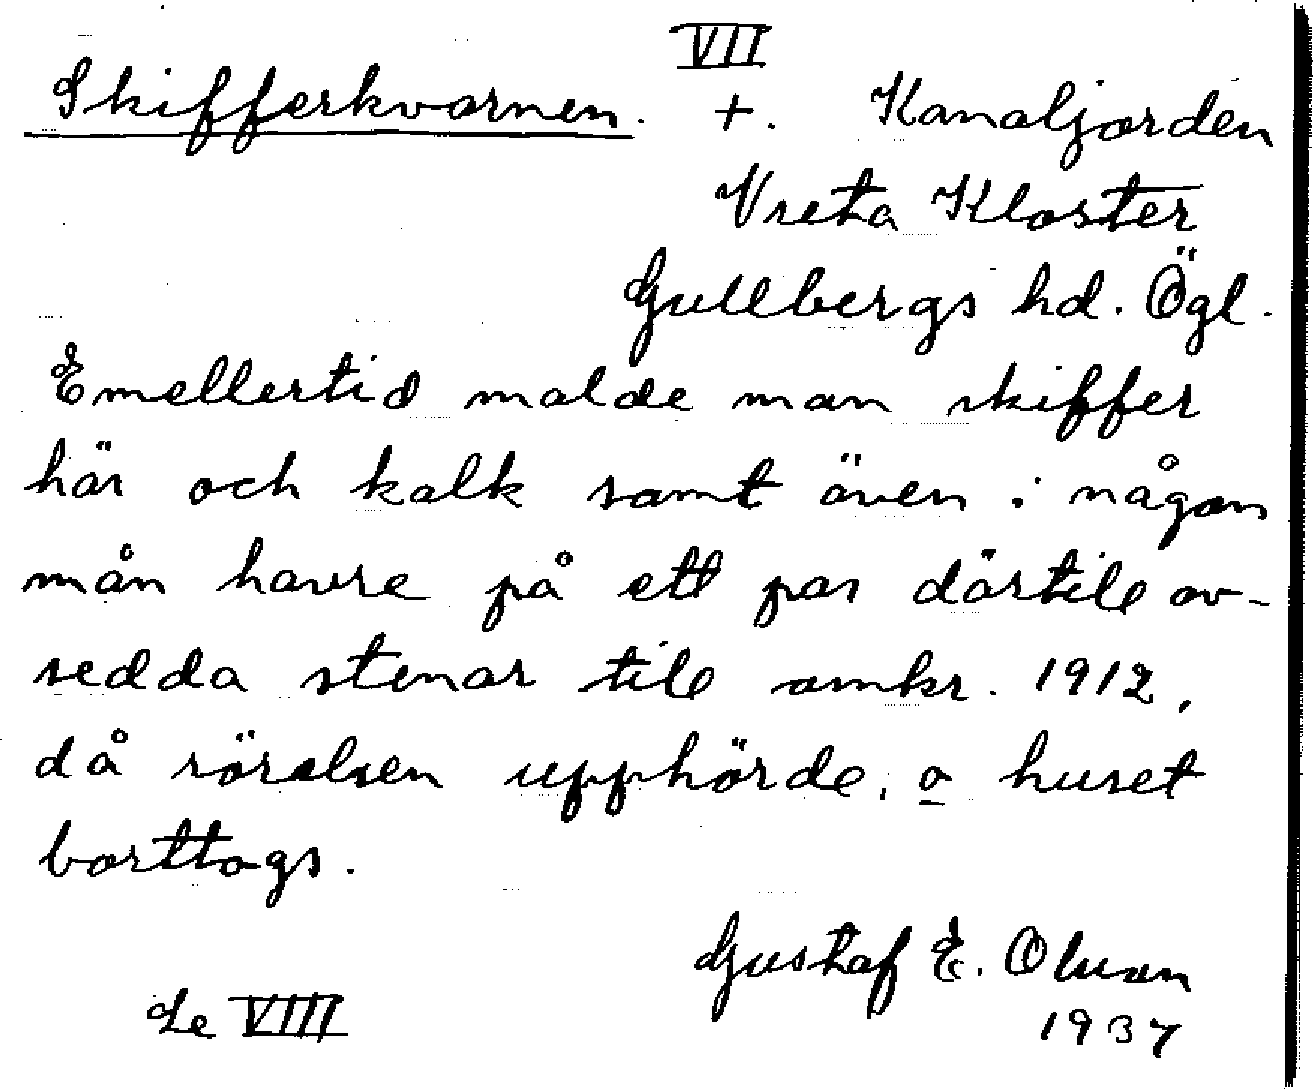 VII
Skifferkvarnen. +. Kanaljorden
Vreta Kloster
Gullbergs hd. Ögl.
Emellertid malde man skiffer
här och kalk samt även i någon
mån havre på ett par därtill av-
sedda stenar till omkr. 1912,
då rörelsen upphörde, o huset
borttogs.
Gustaf E. Olsson
Se VIII 1937